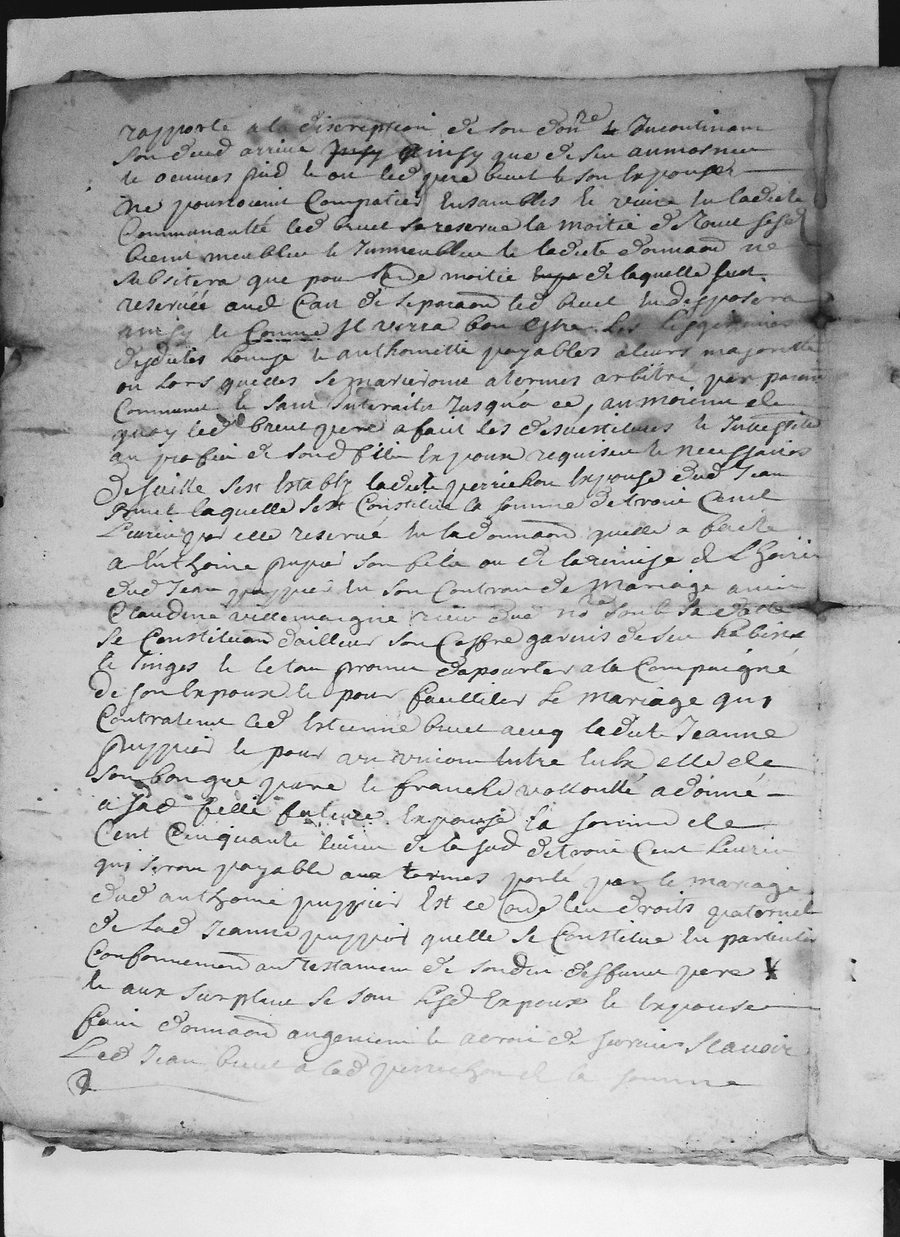 rapporte a la discreption de son donre & Incontinant
son deced arrive ainsy que de ses aumosnes
le oeuvres pied le ou led pere bruet le son Expouze
ne pourroient Compatir Ensambles le vivre en ladicte
Communaulté led bruet se reserve la moitié de tous sesd
bients meubles le Immeubles le ladicte donnaon ne
subsitera que pour lade moitié de laquelle
reservée aud Cas de separaon led bruet en disposera
ainsy le Comme Il verra bon Estre. Les Leggitimes
desdites Louise le anthoinette payables a leurs majorité
ou Lors quelles se marieront a termes arbitré par parans
Communs le sans Interaits Jusqua ce, au moien de
quoy led bruet pere a fait les desvestitures le Investiture
au profict de sond fils Expoux requises le necessaires
de suitte sest Estably ladicte perrichon Expouse dud Jean
bruet laquelle sest Constitué la somme de trois Cent
Livres par elle reservé en la donnaon quelle a faicte
a anthoine puppié son fils ou de la remise de L'hoirie
dud Jean puppier en son Contrat de Mariage avec
Claudine villemaigne receu dud nore soub sa datte
se Constituant dailleur son Coffre garnis de ses habits
le linges le le tout promis dapourter a la Compaigné
de son Expoux le pour facilliter Le mariage qui
Contractent led Estienne bruet avecq ladicte Jeanne
puppier le pour entre Eulx elle de
son bon gre pure le franche vollonté a donné
a sad fille future Expouse la somme de
Cent Cinquante livres de la sud de trois Cent Livres
qui seront payable aux termes porté par le mariage
dud anthoine puppier Est ce outre les droits paternels
de lad Jeanne puppier quelle se Constitue En particulier
Conformement au testament de sondit deffunt pere
le aux surplus se sont lesd Expoux le Expouse
faict donnaon augement le acroit de survies Scavoir
Led Jean bruet a lad perrichon de la somme